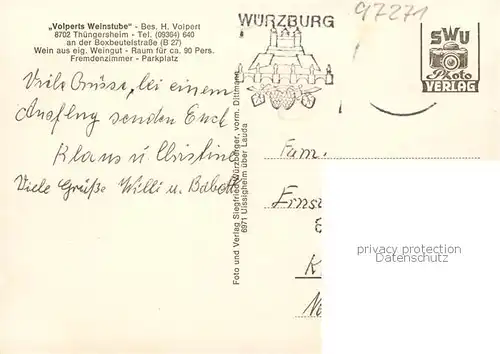 „Volperts Weinstube“ - Bes. H. Volpert
8702 Thüngersheim - Tel. (09364) 640
an der Boxbeutelstraße (B 27)
Wein aus eig. Weingut - Raum für ca. 90 Pers.
Fremdenzimmer - Parkplatz
WÜRZBURG
97271
SWU
Photo
VERLAG
Viele Grüsse, bei einem
Ausflug senden Euch
Klaus u. Christine
Viele Grüße Willi u. Babett
Foto und Verlag Siegfried Würzburger, vorm. Dittmann
6971 Uissigheim über Lauda
Fam.
Ernst
K
privacy protection
Datenschutz